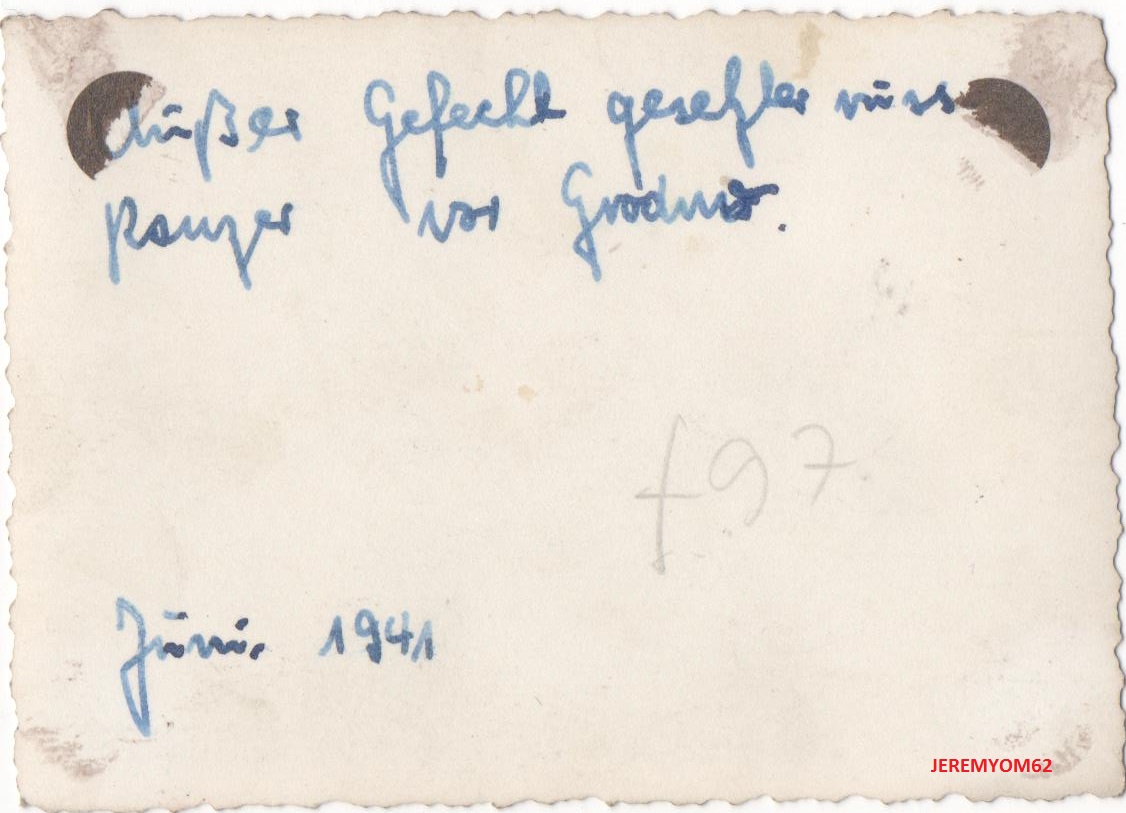 Außer Gefecht gesetzter russ
Panzer vor Grodno.
f 97
Juni 1941
JEREMYOM62